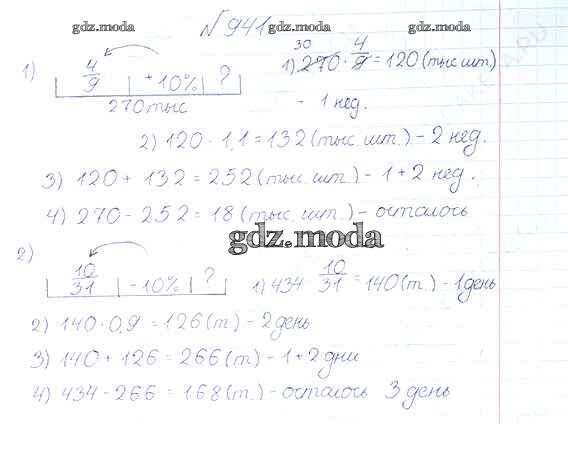 gdz.moda №941 gdz.moda gdz.moda
1) 4/9 | +10% | ? 1) 270 · 4/9 = 120 (тыс шт.)
30
270 тыс - 1 нед.
2) 120 · 1,1 = 132 (тыс. шт.) - 2 нед.
3) 120 + 132 = 252 (тыс. шт.) - 1 + 2 нед.
4) 270 - 252 = 18 (тыс. шт.) - осталось
gdz.moda
2) 10/31 | -10% | ? 1) 434 10/31 = 140 (т.) - 1 день
2) 140 · 0,9 = 126 (т) - 2 день
3) 140 + 126 = 266 (т) - 1 + 2 дни
4) 434 - 266 = 168 (т.) - осталось 3 день
gdz.moda